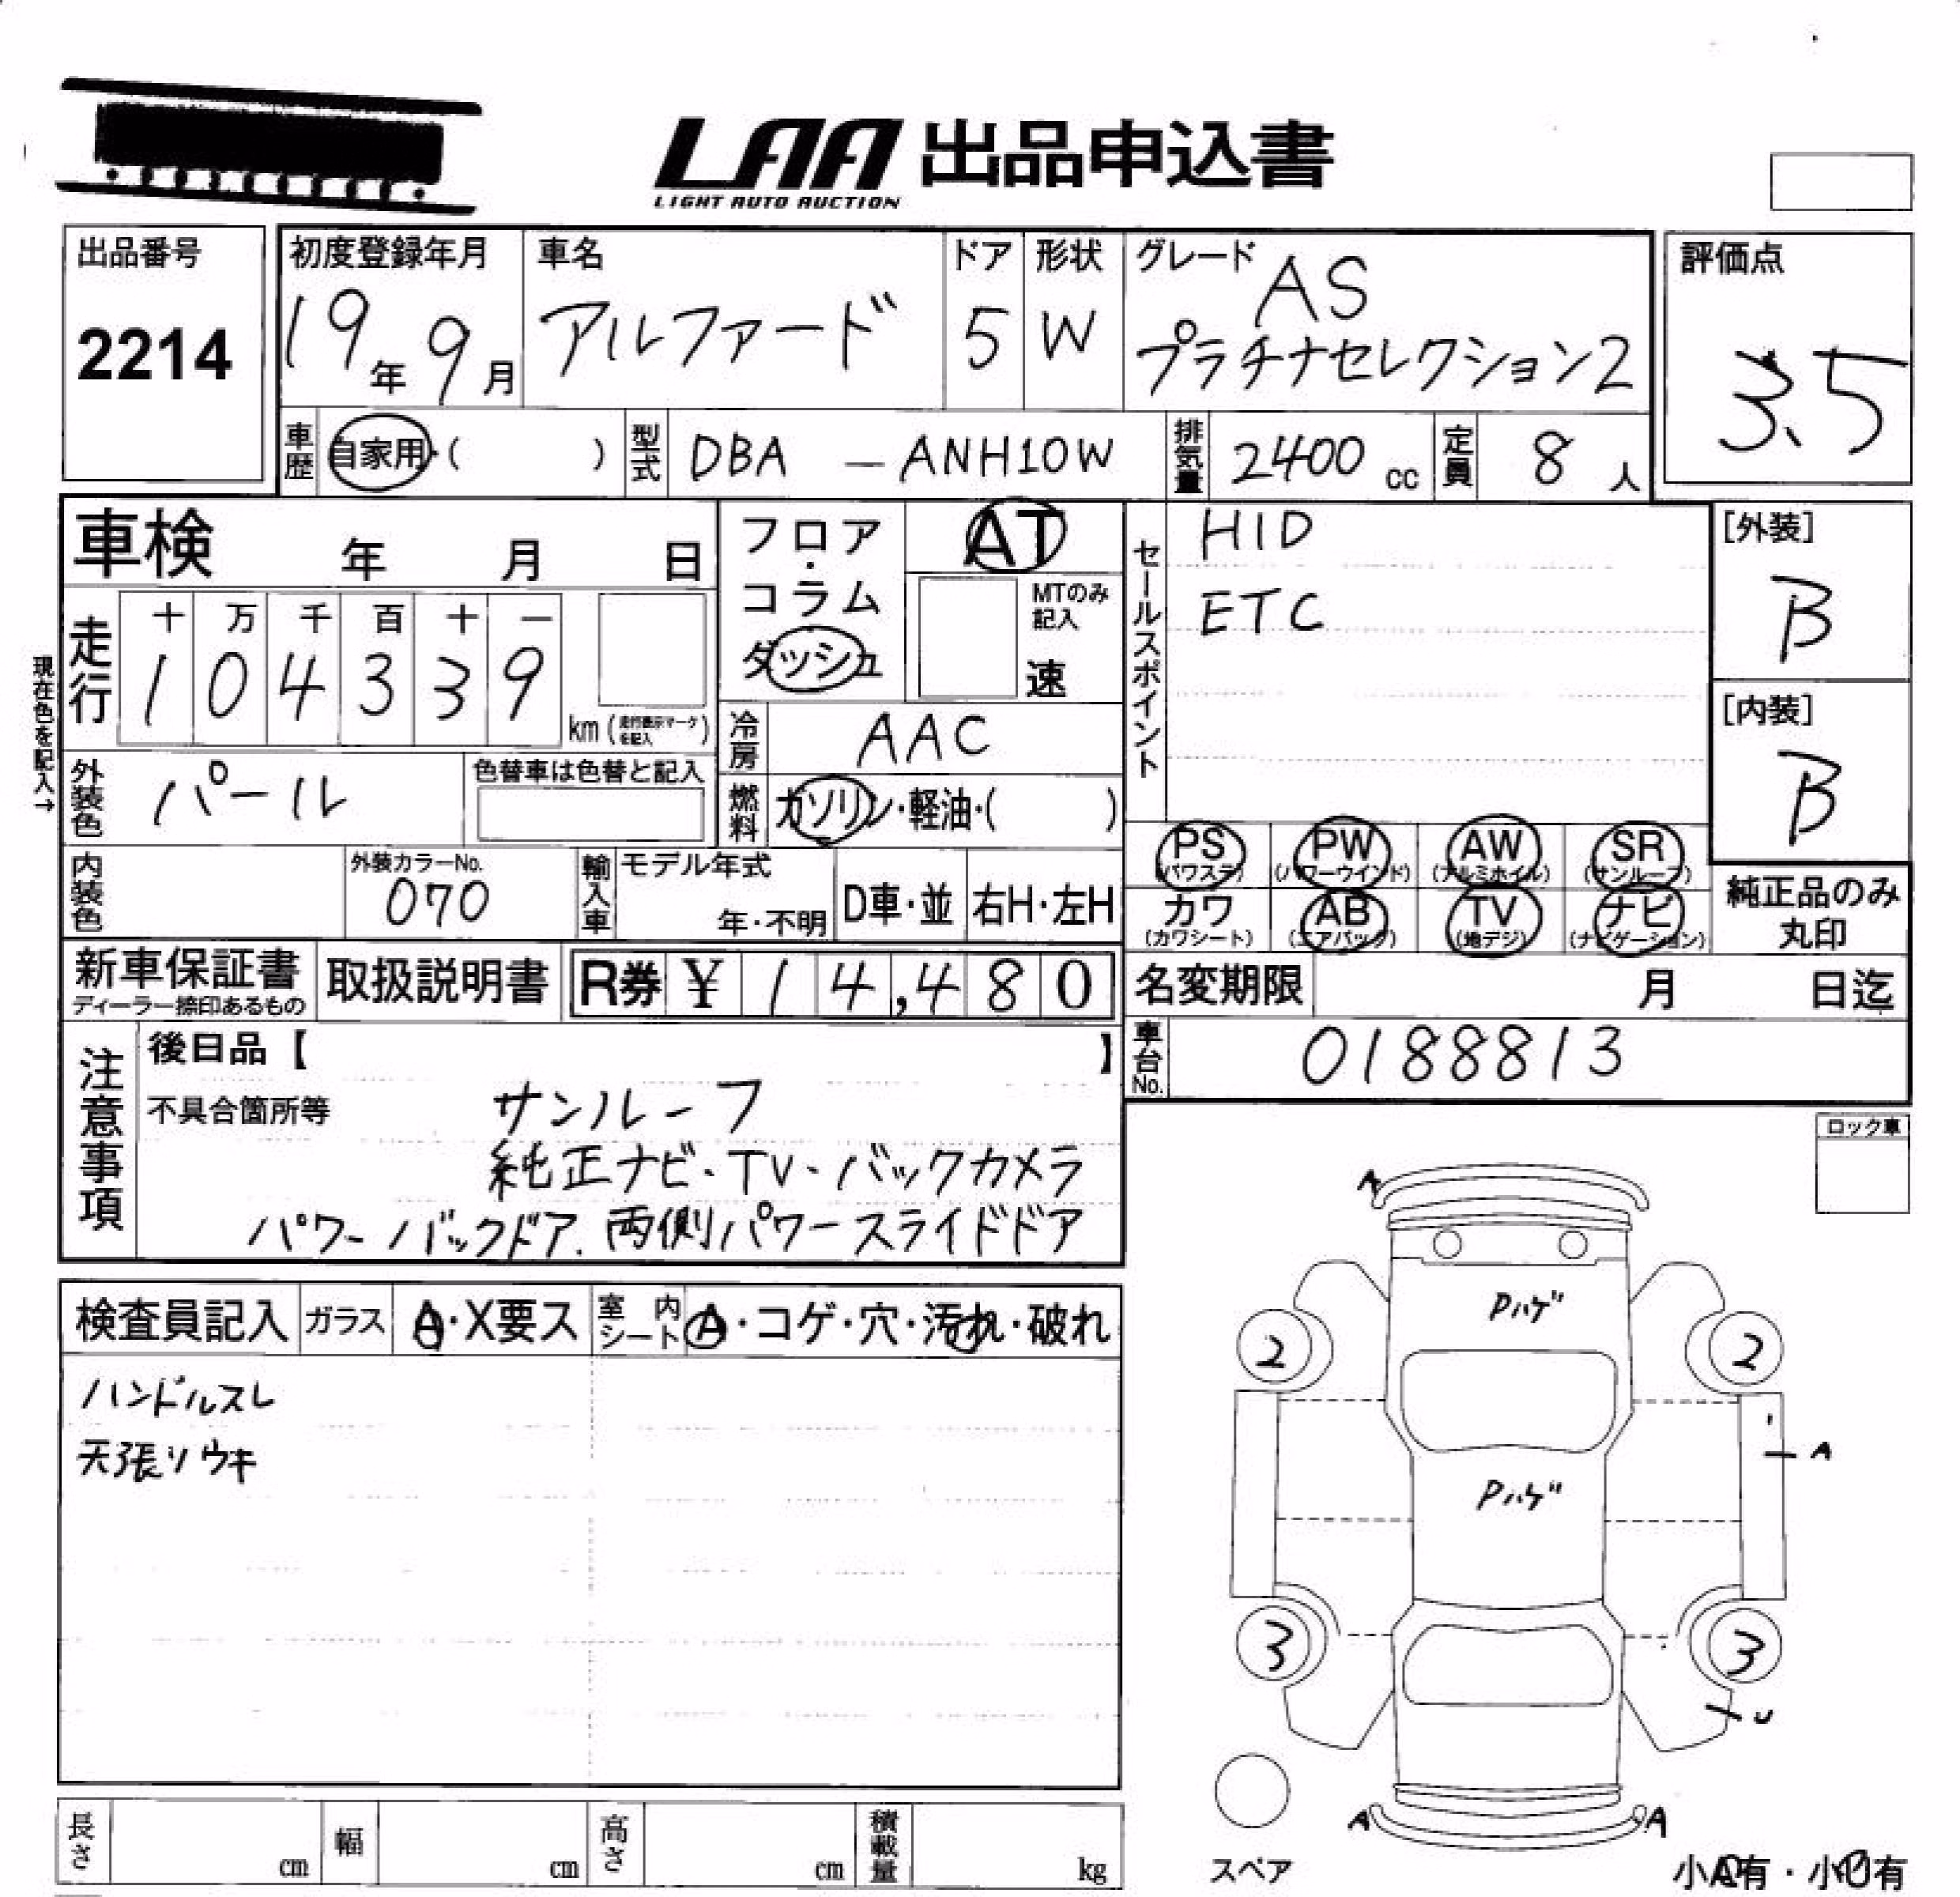 LAA 出品申込書
LIGHT AUTO AUCTION
出品番号
2214
初度登録年月
19年 9月
車名
アルファード
ドア
5
形状
W
グレード
AS
プラチナセレクション2
評価点
3.5
車歴 自家用・( )
型式 DBA - ANH10W
排気量 2400 cc
定員 8 人
車検 年 月 日
フロア・コラム ダッシュ
AT
MTのみ記入
速
セールスポイント
HID
ETC
[外装]
B
[内装]
B
現在色を記入→
走行
十 万 千 百 十 一
1 0 4 3 3 9
km (走行表示マークを記入)
冷房 AAC
外装色 パール
色替車は色替と記入
燃料 ガソリン・軽油・( )
内装色
外装カラーNo.
070
輸入車 モデル年式
年・不明
D車・並
右H・左H
PS (パワステ)
PW (パワーウインド)
AW (アルミホイル)
SR (サンルーフ)
カワ (カワシート)
AB (エアバック)
TV (地デジ)
ナビ (ナビゲーション)
純正品のみ
丸印
新車保証書
ディーラー捺印あるもの
取扱説明書
R券 ¥ 14,480
名変期限 月 日迄
車台No. 0188813
注意事項
後日品【 】
不具合箇所等
サンルーフ
純正ナビ・TV・バックカメラ
パワーバックドア. 両側パワースライドドア
ロック車
検査員記入 ガラス A・X要ス 室内シート A・コゲ・穴・汚れ・破れ
ハンドルスレ
天張りウキ
A
Pハゲ
2
2
A
Pハゲ
3
3
U
A
A
スペア
小A有・小U有
長さ cm
幅 cm
高さ cm
積載量 kg